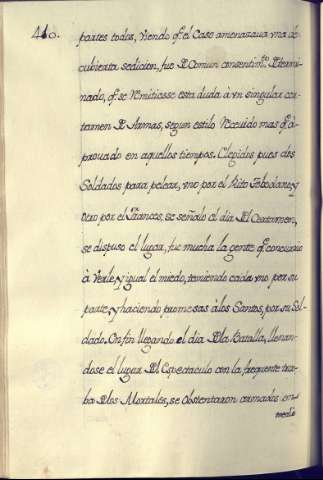 410.
partes todas, viendo q.e el Caso amenazava una de
cubierta sedicion, fue D Comun consentim.to Determi-
nado, q.e se remitiesse esta duda à vn singular cer-
tamen D Armas, segun estilo recevido mas q.e à-
provado en aquellos tiempos. Elegidos pues dos
Soldados para pelear, vno por el Rito Toledano, y
otro por el Frances, se señalò el dia Del Certamen,
se dispuso el lugar, fue mucha la gente q.e concurrio
à verle, y igual el miedo, teniendo cada vno por su
parte, y haciendo promesas à los Santos, por su Sol-
dado. En fin llegando el dia Dla Batalla, llenan-
dose el lugar Del Espectaculo con la frequente tur-
ba Dlos Mortales, se obstentaron armados en
medio